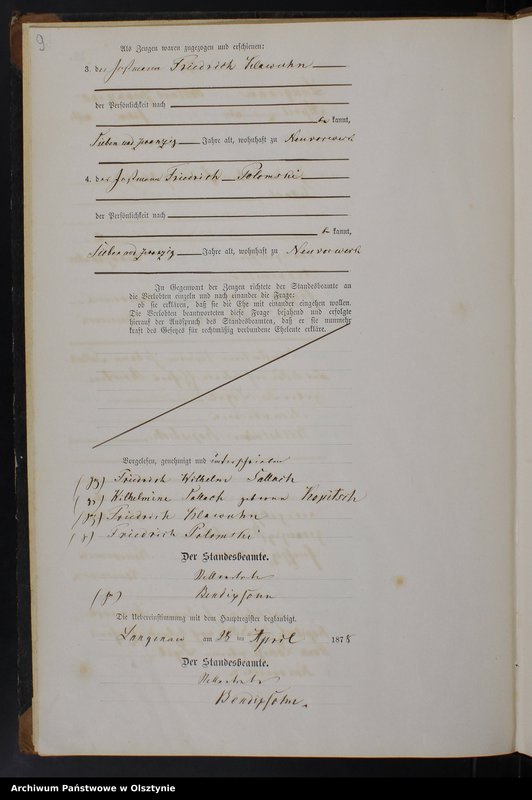 9
Als Zeugen waren zugezogen und erschienen:
3. der Instmann Friedrich Klawuhn
der Persönlichkeit nach
be kannt,
Sieben und zwanzig Jahre alt, wohnhaft zu Neuvorwerk
4. der Instmann Friedrich Polomski
der Persönlichkeit nach
be kannt,
Sieben und zwanzig Jahre alt, wohnhaft zu Neuvorwerk
In Gegenwart der Zeugen richtete der Standesbeamte an
die Verlobten einzeln und nach einander die Frage:
ob sie erklären, daß sie die Ehe mit einander eingehen wollen.
Die Verlobten beantworteten diese Frage bejahend und erfolgte
hierauf der Ausspruch des Standesbeamten, daß er sie nunmehr
kraft des Gesetzes für rechtmäßig verbundene Eheleute erkläre.
Vorgelesen, genehmigt und unterschrieben
Friedrich Wilhelm Sallach
Wilhelmine Sallach geborene Kopitsch
Friedrich Klawuhn
Friedrich Polomski
Der Standesbeamte.
Die Uebereinstimmung mit dem Hauptregister beglaubigt.
Langenau am 28 ten April 1878
Der Standesbeamte.
Archiwum Państwowe w Olsztynie